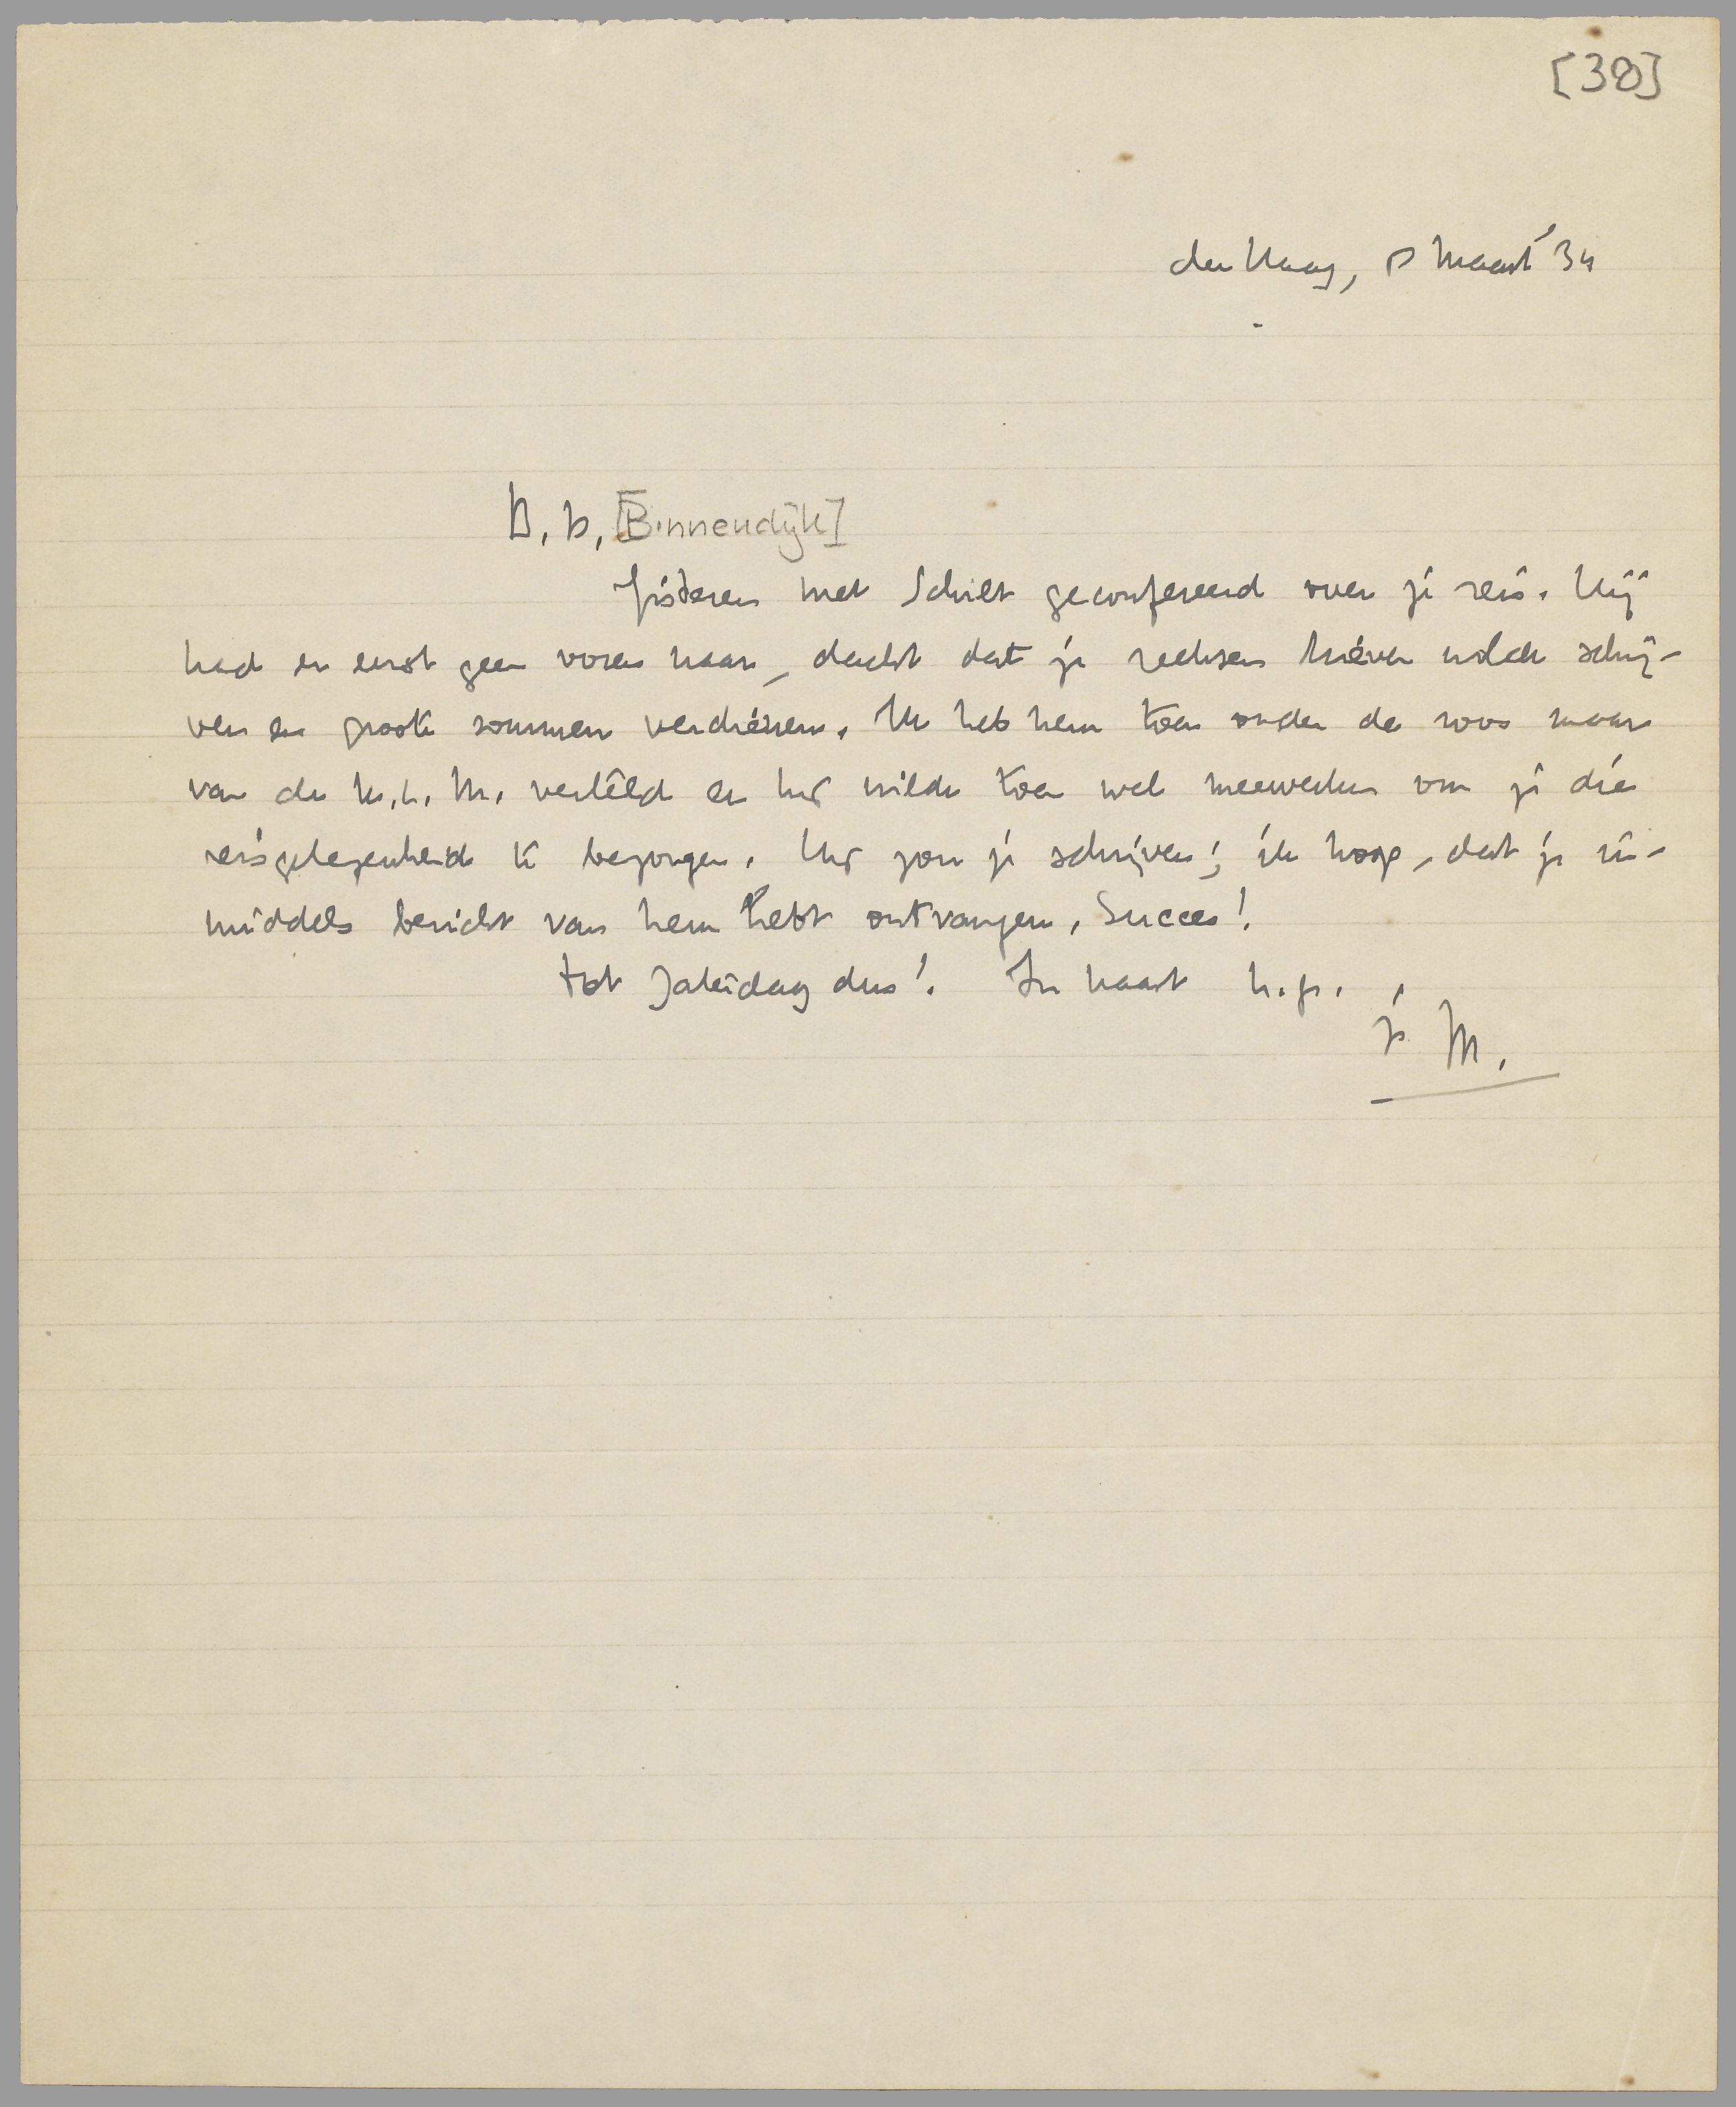 [38]
den Haag, 8 Maart '34
B. B, [Binnendijk]
Gisteren met Schilt geconfereerd over je reis. Hij
had er eerst geen ooren naar, dacht dat je reeksen brieven wilde schrij-
ven en groote sommen verdienen. Ik heb hem toen onder de roos maar
van de K.L.M. verteld en hij wilde toen wel meewerken om je die
reisgelegenheid te bezorgen. Hij zou je schrijven; ik hoop, dat je in-
middels bericht van hem hebt ontvangen. Succes!
Tot Zaterdag dus! In haast h.gr.
je M.